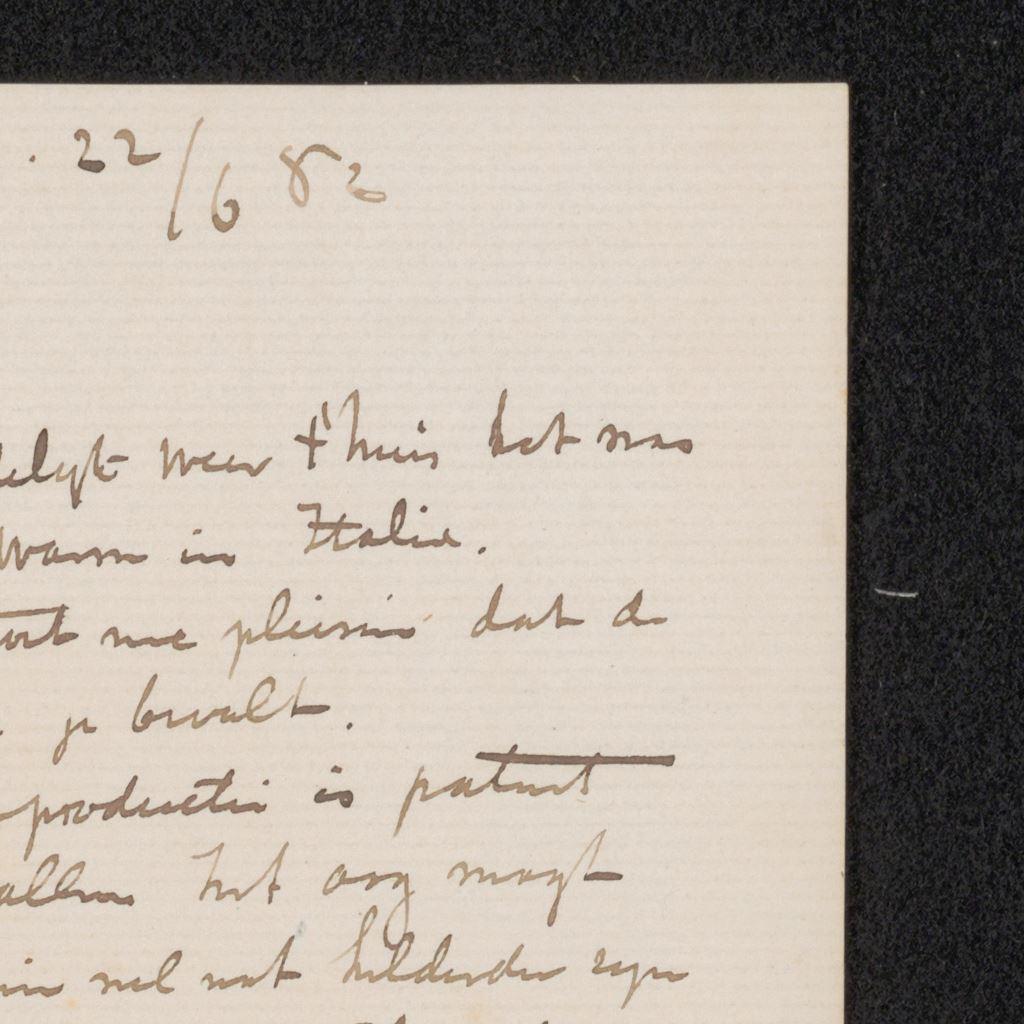 . 22/6 82
delyk weer t'huis het was
warm in Italie.
me pleisir dat de
je bevalt.
productie is patent
allen het oog magt
wel wat helderder zyn